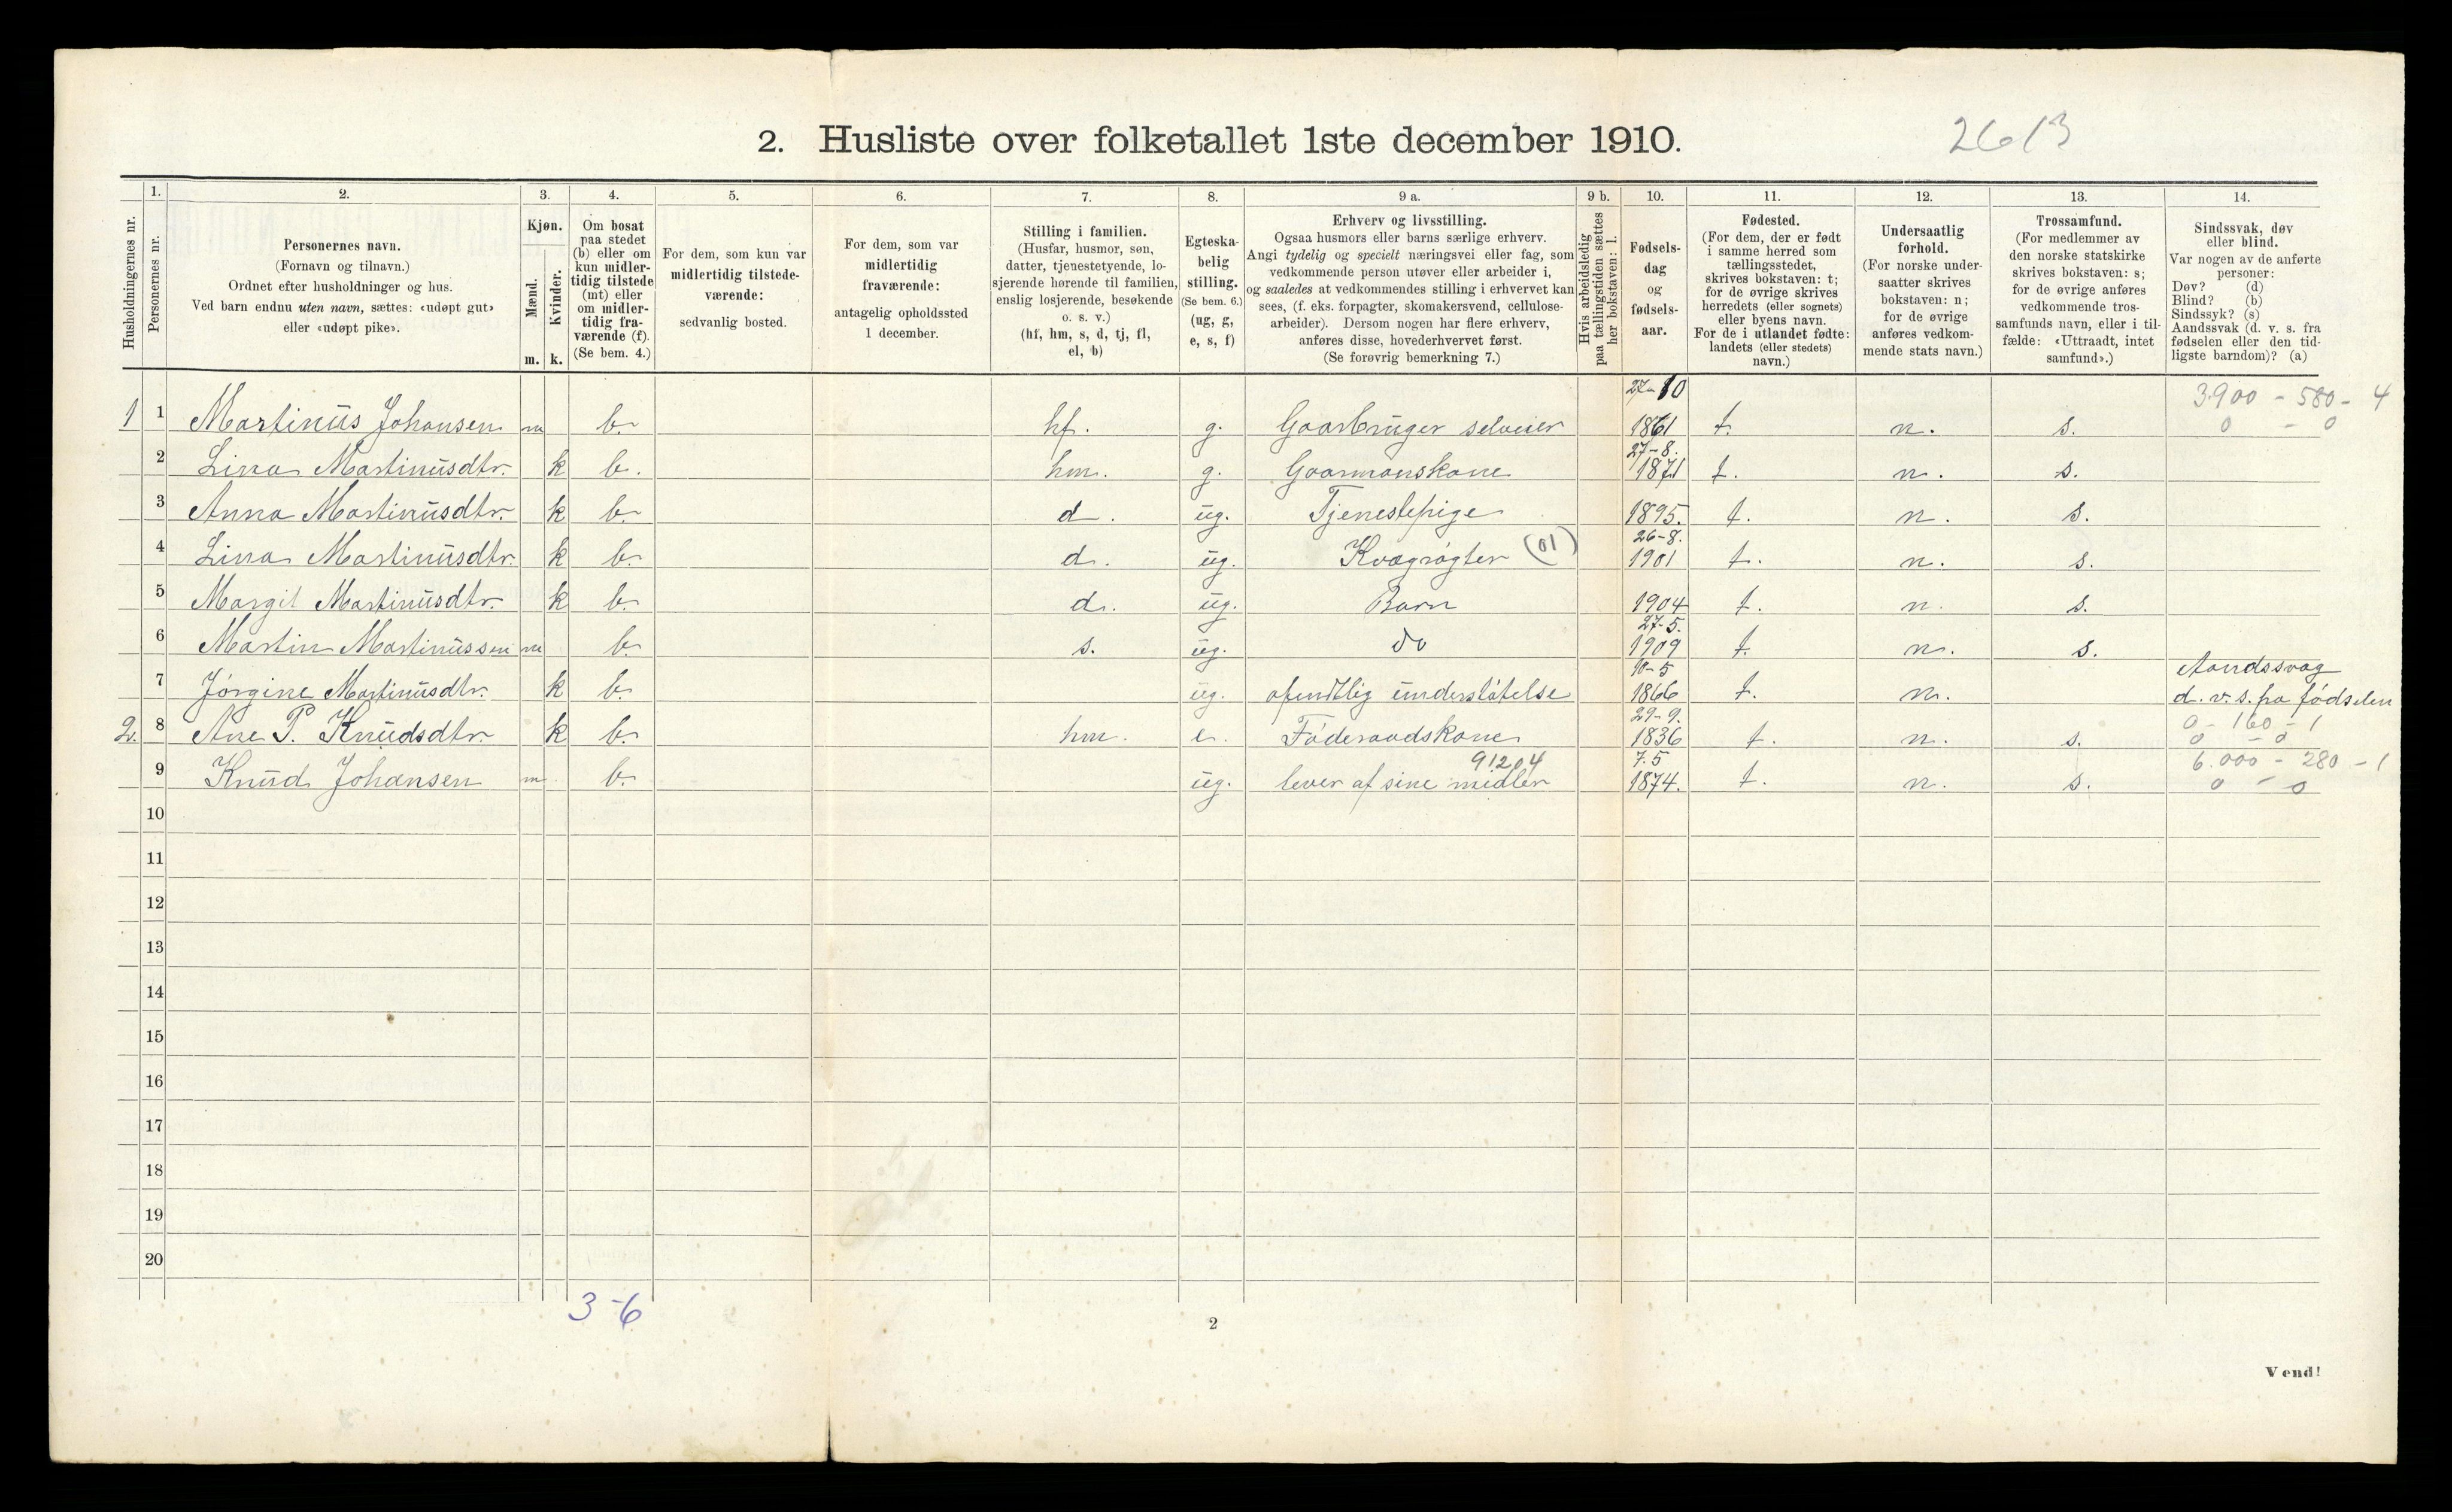 2. Husliste over folketallet 1ste december 1910.
2613
Husholdningernes nr.
1.
Personernes nr.
2.
Personernes navn.
(Fornavn og tilnavn.)
Ordnet efter husholdninger og hus.
Ved barn endnu uten navn, sættes: «udøpt gut»
eller «udøpt pike».
3.
Kjøn.
Mænd.
Kvinder.
m. k.
4.
Om bosat
paa stedet
(b) eller om
kun midler-
tidig tilstede
(mt) eller
om midler-
tidig fra-
værende (f).
(Se bem. 4.)
5.
For dem, som kun var
midlertidig tilstede-
værende:
sedvanlig bosted.
6.
For dem, som var
midlertidig
fraværende:
antagelig opholdssted
1 december.
7.
Stilling i familien.
(Husfar, husmor, søn,
datter, tjenestetyende, lo-
sjerende hørende til familien,
enslig losjerende, besøkende
o. s. v.)
(hf, hm, s, d, tj, fl,
el, b)
8.
Egteska-
belig
stilling.
(Se bem. 6.)
(ug, g,
e, s, f)
9 a.
Erhverv og livsstilling.
Ogsaa husmors eller barns særlige erhverv.
Angi tydelig og specielt næringsvei eller fag, som
vedkommende person utøver eller arbeider i,
og saaledes at vedkommendes stilling i erhvervet kan
sees, (f. eks. forpagter, skomakersvend, cellulose-
arbeider). Dersom nogen har flere erhverv,
anføres disse, hovederhvervet først.
(Se forøvrig bemerkning 7.)
9 b.
Hvis arbeidsledig
paa tællingstiden sættes
her bokstaven: l.
10.
Fødsels-
dag
og
fødsels-
aar.
11.
Fødested.
(For dem, der er født
i samme herred som
tællingsstedet,
skrives bokstaven: t;
for de øvrige skrives
herredets (eller sognets)
eller byens navn.
For de i utlandet fødte:
landets (eller stedets)
navn.)
12.
Undersaatlig
forhold.
(For norske under-
saatter skrives
bokstaven: n;
for de øvrige
anføres vedkom-
mende stats navn.)
13.
Trossamfund.
(For medlemmer av
den norske statskirke
skrives bokstaven: s;
for de øvrige anføres
vedkommende tros-
samfunds navn, eller i til-
fælde: «Uttraadt, intet
samfund».)
14.
Sindssvak, døv
eller blind.
Var nogen av de anførte
personer:
Døv? (d)
Blind? (b)
Sindssyk? (s)
Aandssvak (d. v. s. fra
fødselen eller den tid-
ligste barndom)? (a)
27-10 3900 - 580 - 4
1 1 Martinus Johansen m b. hf. g. Gaarbruger selveier 1861 t. n. s. 0 - 0
27-8.
2 Lina Martinusdtr. k b. hm. g. Gaarmanskone 1871 t. n. s.
3 Anna Martinusdtr. k b. d. ug. Tjenestepige 1895. t. n. s.
26-8.
4 Lina Martinusdtr. k b. d. ug. Kvægrøgter (01) 1901 t. n. s.
5 Margit Martinusdtr. k b. d. ug. Barn 1904 t. n. s.
27-5.
6 Martin Martinussen m b. s. ug. do 1909 t. n. s.
10-5 Aandssvag
7 Jørgine Martinusdtr. k b. ug. ofentlig understøtelse 1866 t. n. d. v. s. fra fødselen
29-9. 0 - 160 - 1
2. 8 Ane P. Knudsdtr. k b. hm. e. Føderaadskone 1836 t. n. s. 0 - 0
91204 7.5 6.000 - 280 - 1
9 Knud Johansen m b. ug. lever af sine midler 1874. t. n. s. 0 - 0
10
11
12
13
14
15
16
17
18
19
20
3-6
2
Vend!